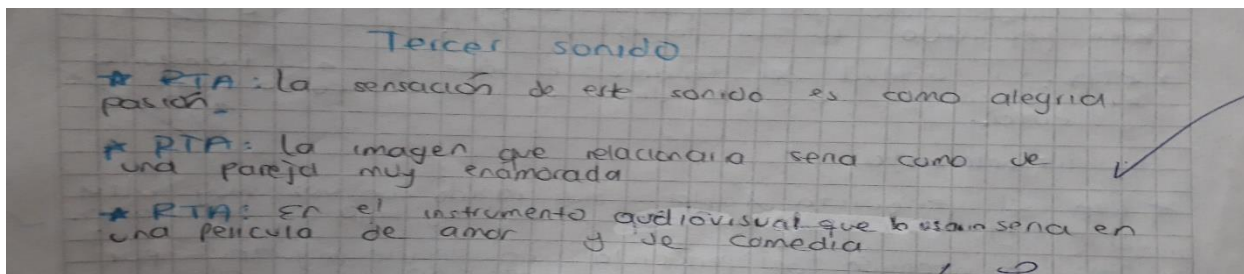 Tercer sonido
* RTA: la sensación de este sonido es como alegria
pasión.
* RTA: la imagen que relacionaria seria como de
una pareja muy enamorada
* RTA: En el instrumento audiovisual que seria en
una pelicula de amor y de comedia